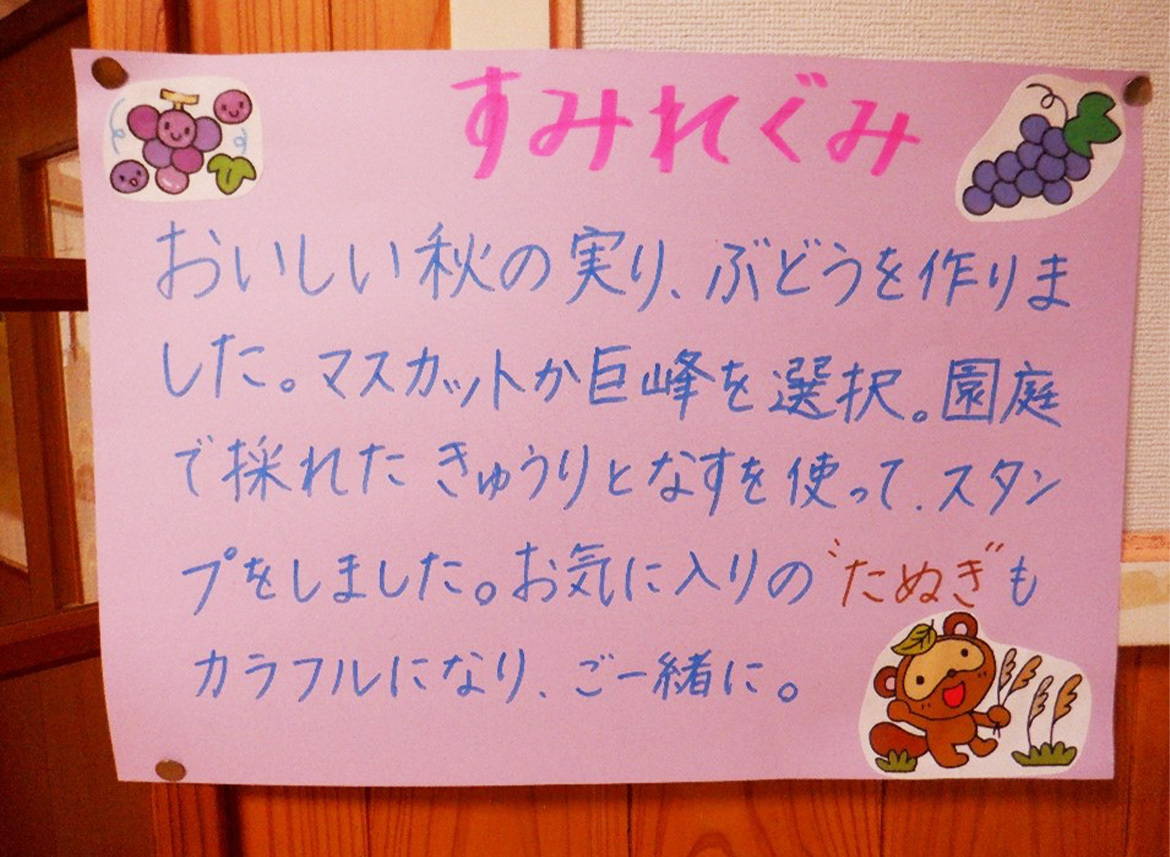 すみれぐみ
おいしい秋の実り、ぶどうを作りま
した。マスカットか巨峰を選択。園庭
で採れたきゅうりとなすを使って、スタン
プをしました。お気に入りの"たぬき"も
カラフルになり、ご一緒に。